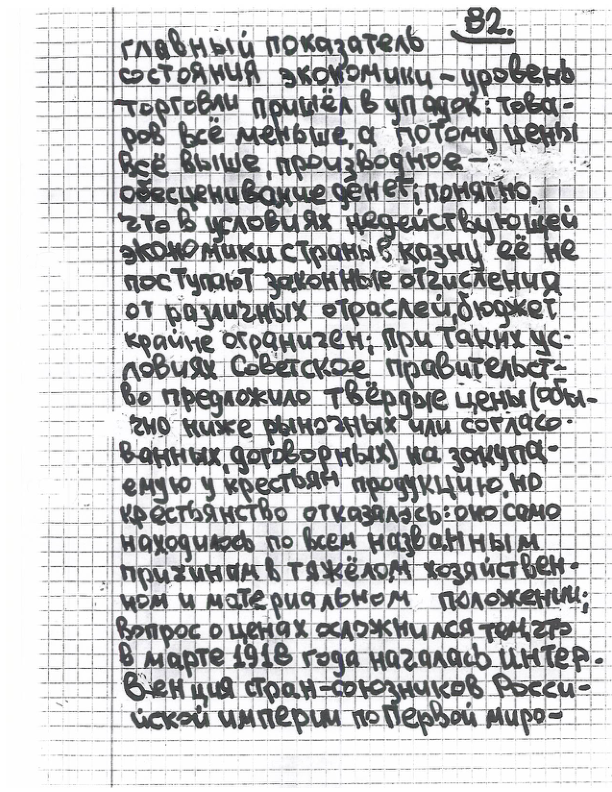 82.
главный показатель
состояния экономики – уровень
торговли пришёл в упадок: това-
ров всё меньше, а потому цены
всё выше, производное –
обесценивание денег; понятно,
что в условиях недействующей
экономики страны в казну её не
поступают законные отчисления
от различных отраслей, бюджет
крайне ограничен; при таких ус-
ловиях Советское правительст-
во предложило твёрдые цены (обы-
чно ниже рыночных или согласо-
ванных, договорных) на закупа-
емую у крестьян продукцию, но
крестьянство отказалось: оно само
находилось по всем названным
причинам в тяжёлом хозяйствен-
ном и материальном положении;
вопрос о ценах осложнился тем, что
в марте 1918 года началась интер-
венция стран-союзников Росси-
йской империи по Первой миро-